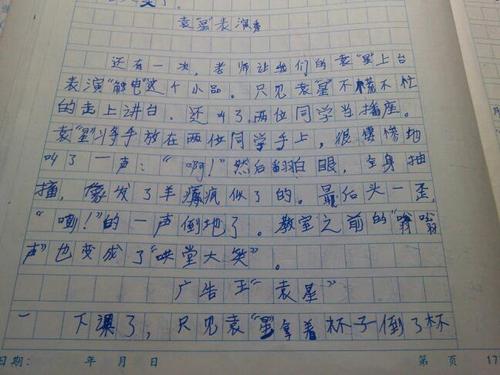 袁"星"表演秀
还有一次，老师让我们的袁"星"上台
表演"触电"这个小品。只见袁"星"不慌不忙
的走上讲台，还叫了两位同学当插座。
袁"星"将手放在两位同学手上，很凄惨地
叫了一声："啊！"然后翻白眼，全身抽
搐，像发了羊癫疯似了的。最后头一歪，
"嘣！"的一声倒地了。教室之前的"嗡嗡
声"也变成了"哄堂大笑"。
广告王"袁星"
下课了，只见袁"星"拿着杯子倒了杯
日期： 年 月 日 第 页 17